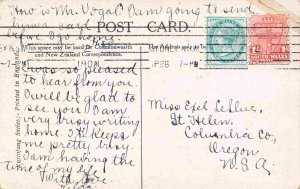 How is Mr. Vogal? I am going to send
him a card
before I go home
POST CARD.
This space may be used for Commonwealth
and New Zealand Correspondence.
I was so pleased
to hear from you.
I will be glad to
see you. I am
very busy writing
home. It keeps
me pretty busy.
I am having the
time of my life
With love
SOUTH WALES
Miss Ethel
St. Helen,
Columbia Co,
Oregon
U.S.A.
Printed in England